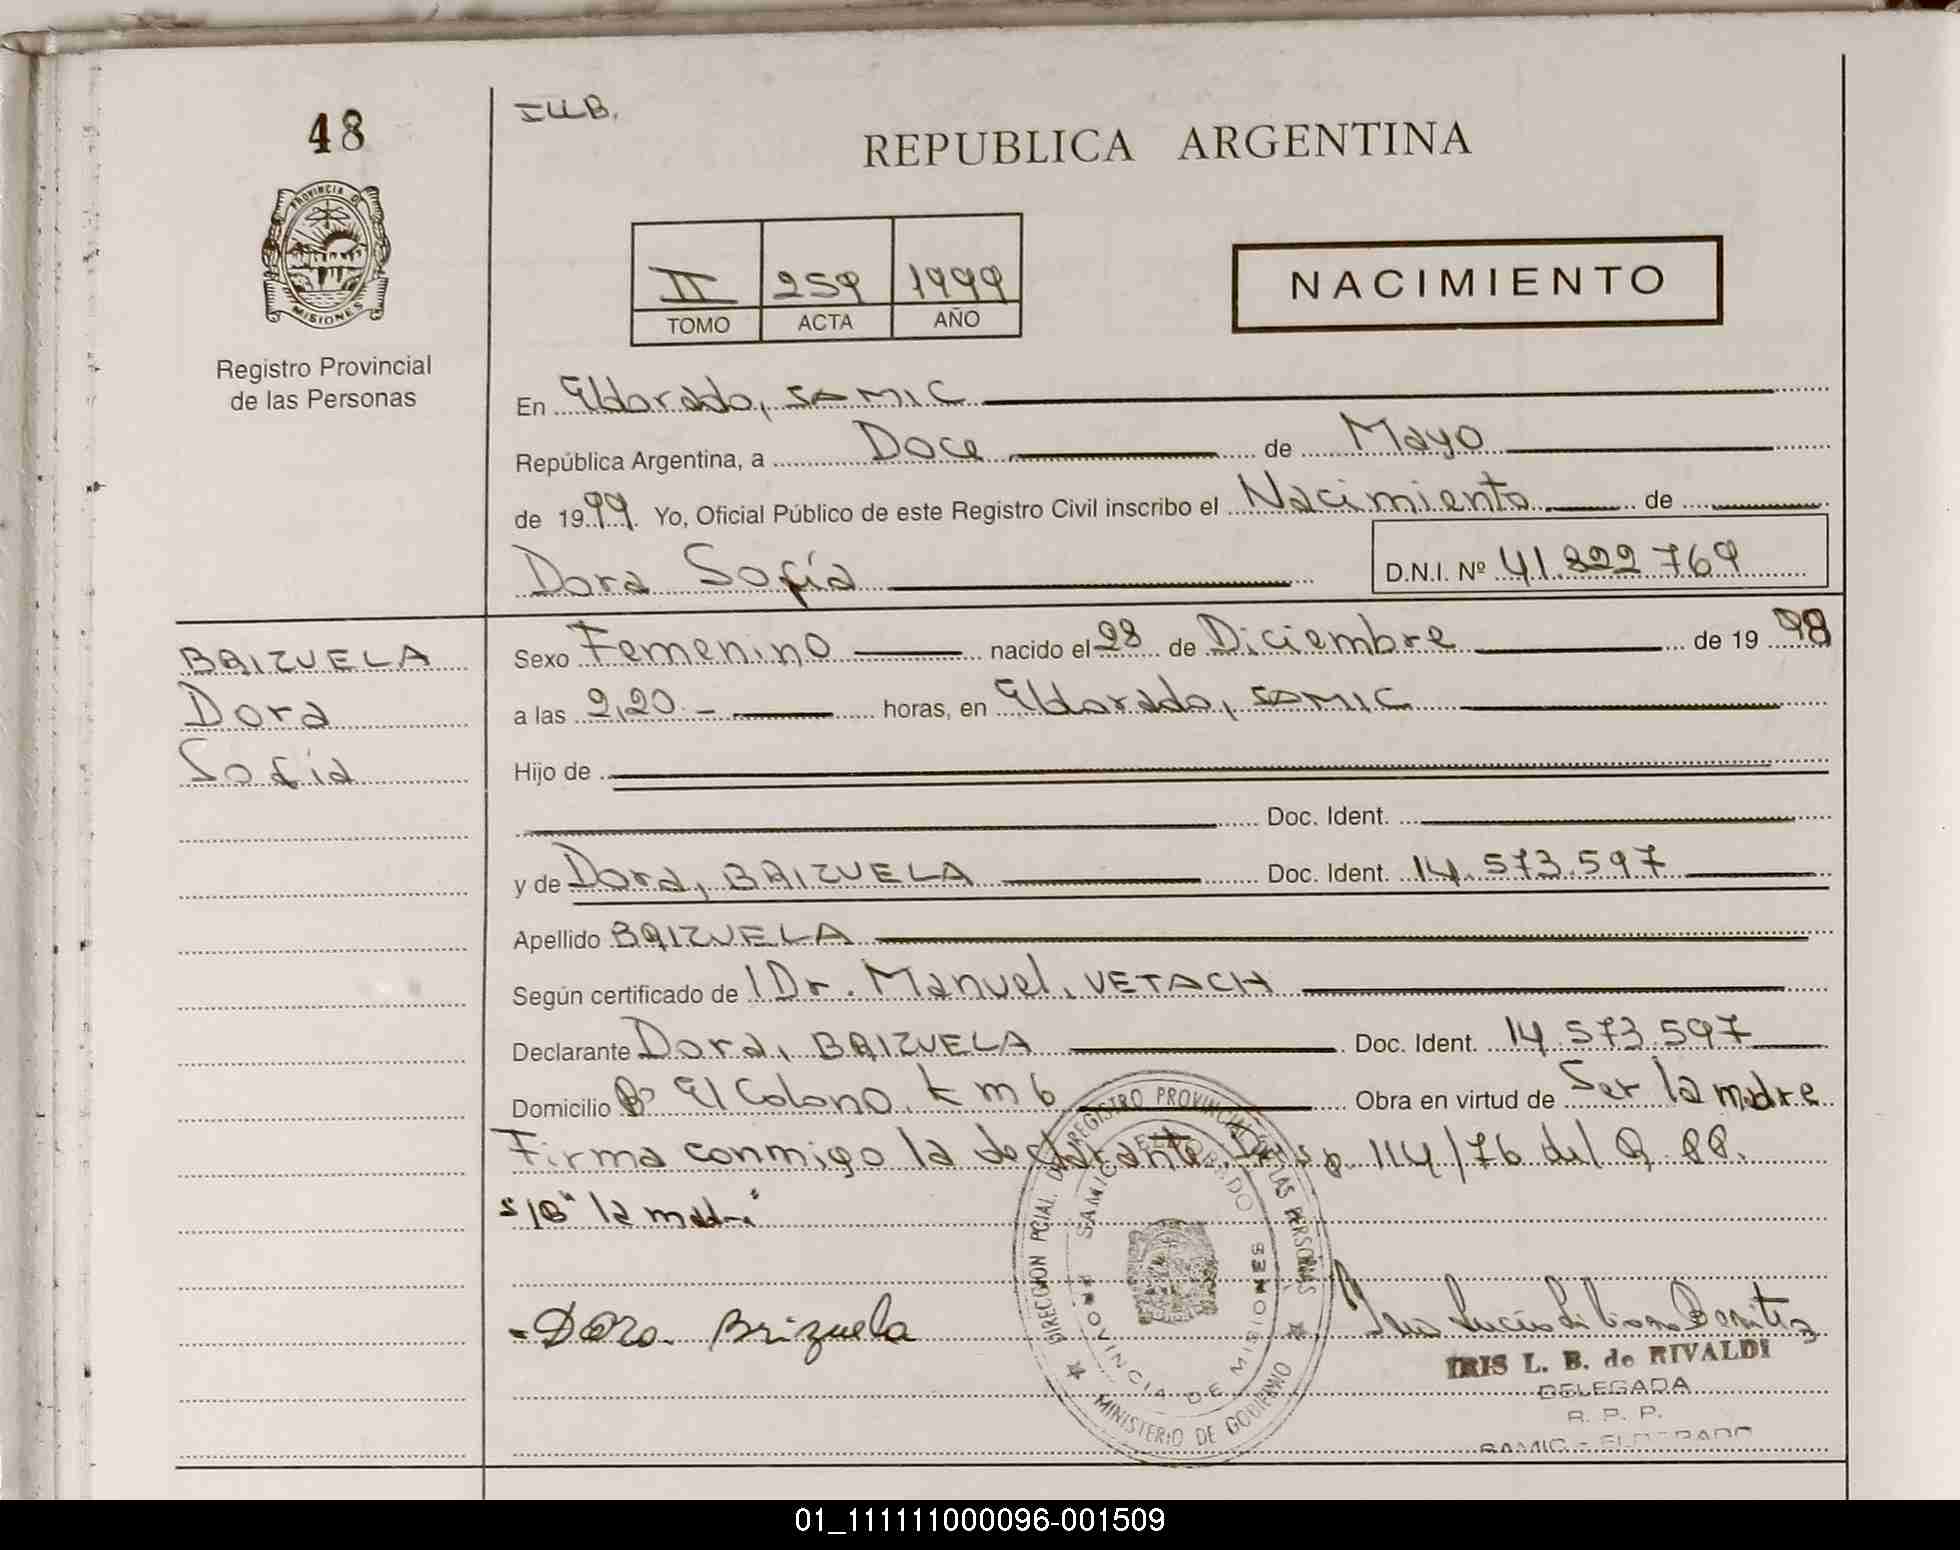 48
I.L.B.
REPUBLICA ARGENTINA
PROVINCIA DE
MISIONES
Registro Provincial
de las Personas
II 259 1999
TOMO ACTA AÑO
NACIMIENTO
En Eldorado, SAMIC
República Argentina, a Doce de Mayo
de 1999. Yo, Oficial Público de este Registro Civil inscribo el Nacimiento de
Dora Sofía D.N.I. Nº 41.822.769
BRIZUELA
Dora
Sofía
Sexo Femenino nacido el 28 de Diciembre de 19 98
a las 2,20 - horas, en Eldorado, SAMIC
Hijo de
Doc. Ident.
y de Dora, BRIZUELA Doc. Ident. 14.573.597
Apellido BRIZUELA
Según certificado de Dr. Manuel, VETACH
Declarante Dora, BRIZUELA Doc. Ident. 14.573.597
Domicilio Bº El Colono Km 6 Obra en virtud de Ser la madre
Firma conmigo la declarante. Disp. 114/76 del
s/B "la madre"
- Dora Brizuela
DIRECCION PCIAL. DEL REGISTRO PROVINCIAL DE LAS PERSONAS
MINISTERIO DE GOBIERNO
SAMIC ELDORADO
PROVINCIA DE MISIONES
IRIS L. B. de RIVALDI
DELEGADA
R. P. P.
SAMIC - ELDORADO
01_111111000096-001509